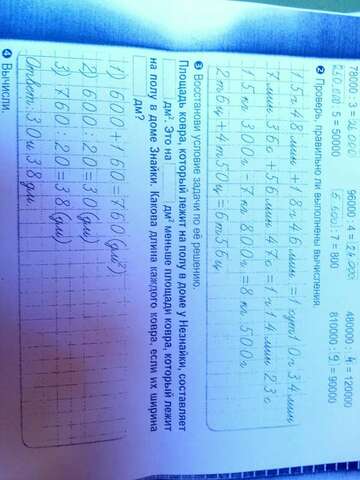 96000 : 4 = 24000
480000 : 4 = 120000
5 = 50000
: 7 = 800
810000 : 9 = 90000
2 Проверь, правильно ли выполнены вычисления.
15ч 48мин + 18ч 46мин = 1сут 10ч 34мин
7мин 36с + 56мин 47с = 1ч 14мин 23с
15кг 300г - 7кг 800г = 8кг 500г
2т 6ц + 4т 50ц = 6т 56ц
3 Восстанови условие задачи по её решению.
Площадь ковра, который лежит на полу в доме у Незнайки, составляет
дм². Это на дм² меньше площади ковра, который лежит
на полу в доме Знайки. Какова длина каждого ковра, если их ширина
дм?
1) 600 + 160 = 760 (дм²)
2) 600 : 20 = 30 (дм)
3) 760 : 20 = 38 (дм)
Ответ: 30 и 38 дм
4 Вычисли.